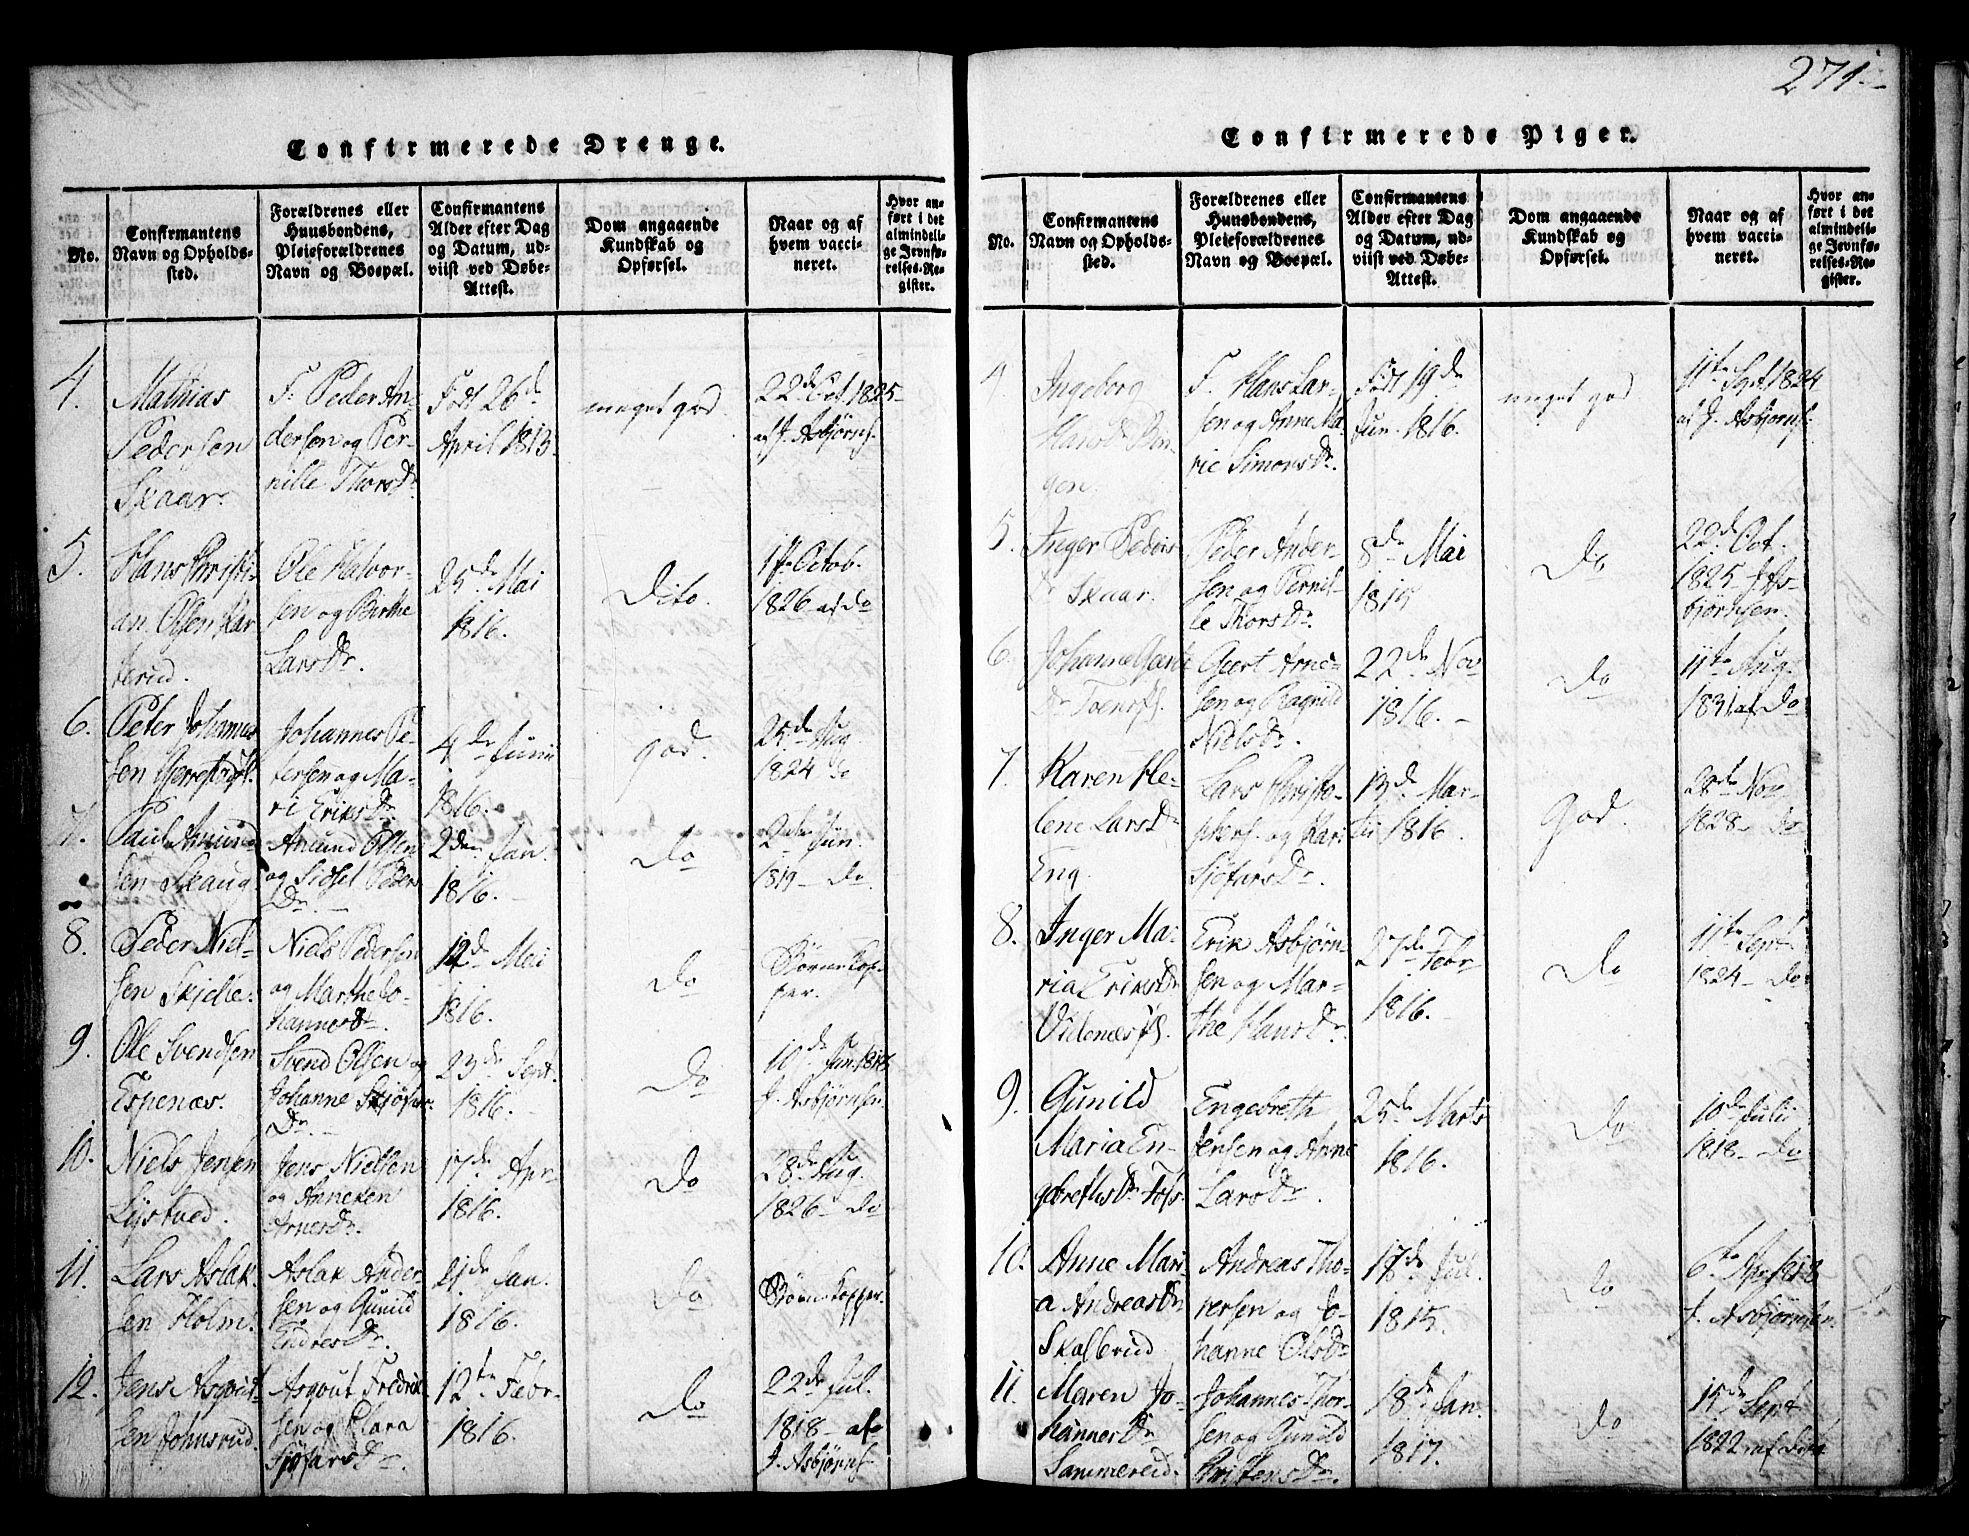 271.
Confirmerede Drenge.
No.
Confirmantens
Navn og Opholds-
sted.
Forældrenes eller
Huusbondens,
Pleieforældrenes
Navn og Boepæl.
Confirmantens
Alder efter Dag
og Datum, ud-
viist ved Døbe-
Attest.
Dom angaaende
Kundskab og
Opførsel.
Naar og af
hvem vacci-
neret.
Hvor an-
ført i det
almindeli-
ge Jevnfø-
relses-Re-
gister.
4.
Mathias
Pedersen
Skaar.
F. Peder An-
dersen og Per-
nille Thorsdr
Født 26d
April 1813.
meget god.
22d Oct. 1825
af J. Asbjørns.
5.
Hans Christi-
an Olsen Kar
terud.
Ole Halvor-
sen og Birthe
Larsdr.
25de Mai
1816.
Dito.
1ste Octob.
1826 af do
6.
Peter Johannes
sen
Johannes Pe-
tersen og Ma-
ri Eriksdr
4de Junii
1816.
god.
25de Aug.
1824 do
7.
Paul Amund
sen Skaug
Amund Olsen
og Sidsel Peders
Dr.
2den Jan.
1816.
Do
2den Jun.
1819 - Do.
8.
Peder Niel-
sen Skjelle.
Niels Pedersen
og Marthe Jo-
hannesdr.
12de Mai
1816.
Do
Børnekop-
per.
9.
Ole Svendsen
Espenæs.
Svend Olsen og
Johanne Skjøfer
Dr.
23de Sept.
1816.
Do
10de Jun. 1816
J. Asbjørnsen.
10.
Niels Jensen
Lystued.
Jens Nielsen
og Anneken
Arnesdr.
17de Apr
1816.
Do
28de Aug.
1826 - Do
11.
Lars Aslak-
sen Holm.
Aslak Ander-
sen og Gunild
Endresdr.
21de Jan.
1816.
Do
Børnekopper.
12.
Jens Asgout-
sen Johnsrud.
Asgout Fredrik-
sen og Clara
Sjøfarsdr.
12te Febr.
1816.
Do
22de Jul.
1818 - af
J. Asbjørns.
Confirmerede Piger.
No.
Confirmantens
Navn og Opholds-
sted.
Forældrenes eller
Huusbondens,
Pleieforældrenes
Navn og Boepæl.
Confirmantens
Alder efter Dag
og Datum, ud-
viist ved Døbe-
Attest.
Dom angaaende
Kundskab og
Opførsel.
Naar og af
hvem vacci-
neret.
Hvor an-
ført i det
almindeli-
ge Jevnfø-
relses-Re-
gister.
4
Ingeborg
Hansdr Bon-
gen.
F. Hans Lar-
sen og Anne Ma-
rie Simonsdr.
Født 19de
Jun. 1816.
meget god.
11te Sept. 1824
af J. Asbjørns.
5.
Inger Peders
Dr Skaar.
Peder Ander-
sen og Pernil-
le Thorsdr
8de Mai
1815
Do
22de Oct.
1825 J. As-
bjørnsen.
6.
Johanne
Geert Arne-
sen og Ragnild
Nielsdr.
22de Nov
1816.
Do
11te Aug.
1831 af Do
7.
Karen He-
lene Larsdr
Eng.
Lars Christo-
phers. og Kari
Sjøfarsdr.
13de Mar-
tii 1816.
God.
28de Nov
1828 - Do
8.
Inger Ma-
ria Eriksdr
Videnæs
Erik Asbjørn-
sen og Mar-
the Hansdr.
27de Febr
1816.
Do
11te Sept.
1824 - Do
9.
Gunild
Maria En-
gebrethsdr Fos-
Engebreth
Jensen og Anne
Larsdr.
25de Marts
1816.
Do
10de Julii
1818 - Do
10.
Anne Mari-
a Andreasdr
Skalberud
Andreas Tho-
resen og Jo-
hanne Olsdr
17de Jul.
1815.
Do
6te Apr 1818
J. Asbjørnsen.
11.
Maren Jo-
hannesdr
Sammerud.
Johannes Thor-
sen og Gunild
Christensdr.
18de Jan.
1817.
Do
15de Sept
1822 af Dito